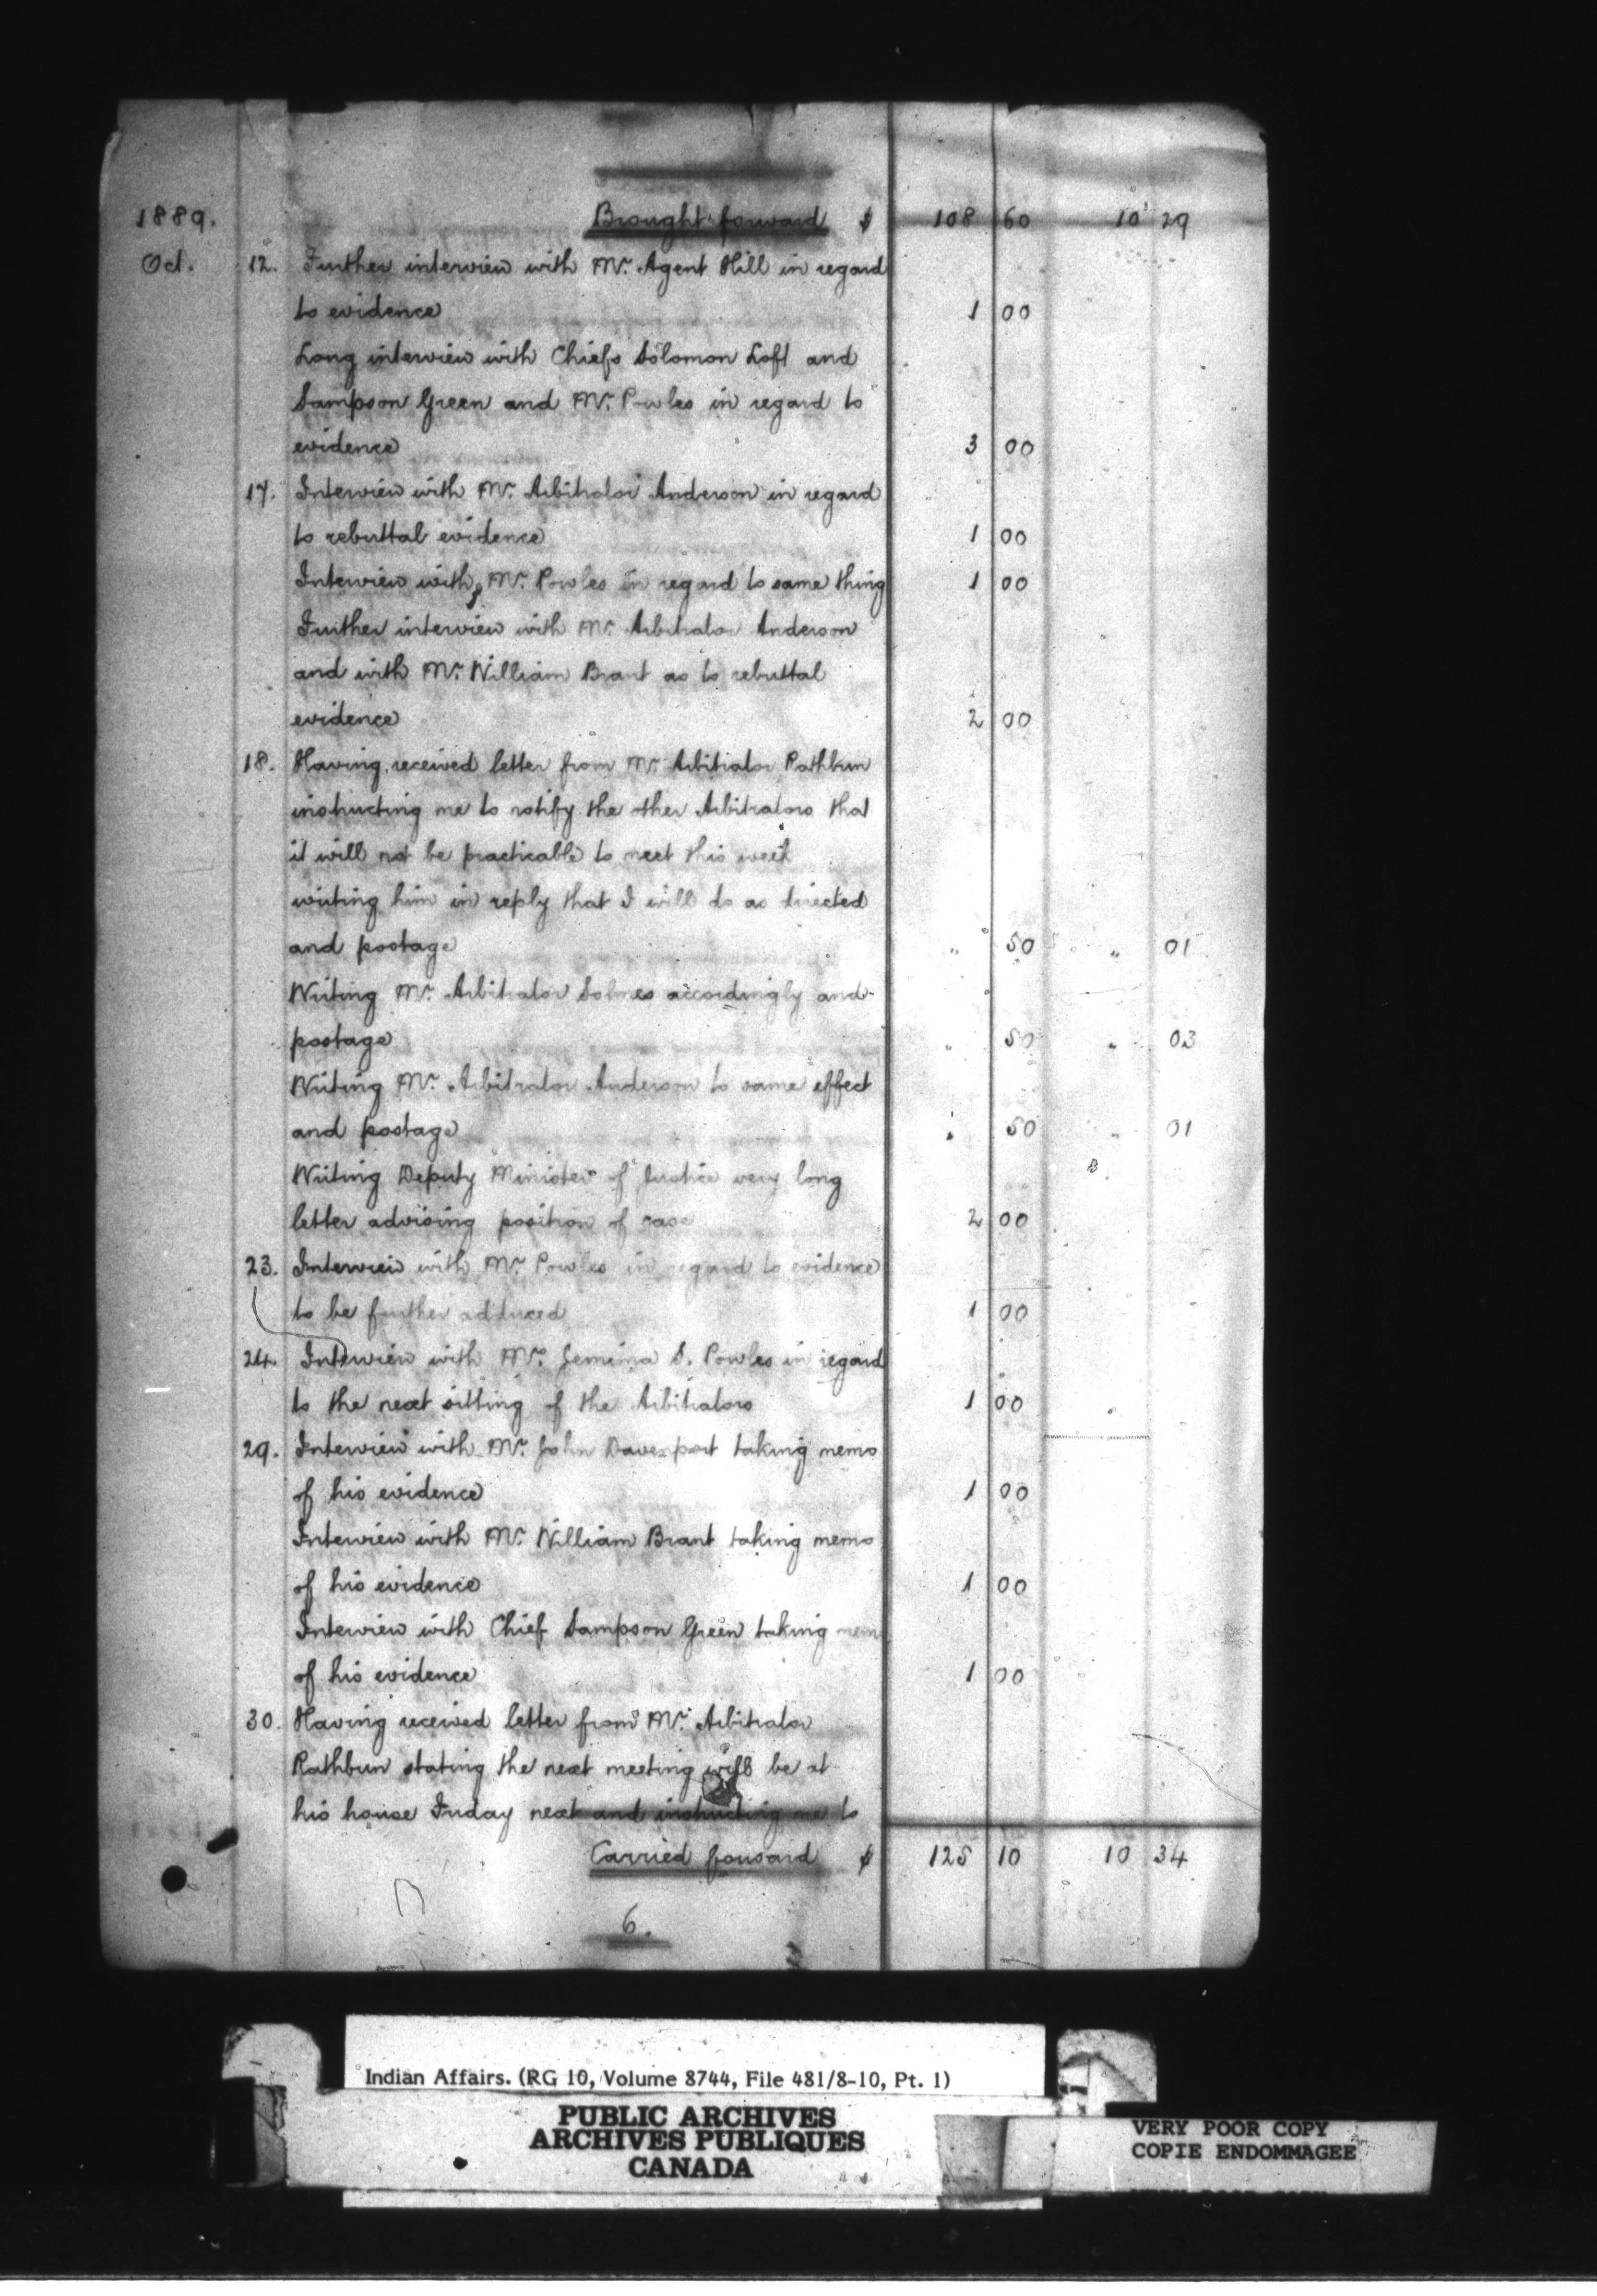 1889. Brought forward $ 108 60 10 29
Oct. 12. Further interview with Mr. Agent Hill in regard
to evidence 1 00
Long interview with Chiefs Solomon Loft and
Sampson Green and Mr. Powles in regard to
evidence 3 00
17. Interview with Mr. Arbitrator Anderson in regard
to rebuttal evidence 1 00
Interview with Mr. Powles in regard to same thing 1 00
Further interview with Mr. Arbitrator Anderson
and with Mr. William Brant as to rebuttal
evidence 2 00
18. Having received letter from Mr. Arbitrator Rathbun
instructing me to notify the other Arbitrators that
it will not be practicable to meet this week
writing him in reply that I will do as directed
and postage " 50 " 01
Writing Mr. Arbitrator Solmes accordingly and
postage " 50 " 03
Writing Mr. Arbitrator Anderson to same effect
and postage " 50 " 01
Writing Deputy Minister of Justice very long
letter advising position of case 2 00
23. Interview with Mr. Powles in regard to evidence
to be further adduced 1 00
24. Interview with Mrs. Jemima S. Powles in regard
to the next sitting of the Arbitrators 1 00
29. Interview with Mr. John Davenport taking memo
of his evidence 1 00
Interview with Mr. William Brant taking memo
of his evidence 1 00
Interview with Chief Sampson Green taking mem
of his evidence 1 00
30. Having received letter from Mr. Arbitrator
Rathbun stating the next meeting will be at
his house Friday next and instructing me to
Carried forward $ 125 10 10 34
6.
Indian Affairs. (RG 10, Volume 8744, File 481/8-10, Pt. 1)
PUBLIC ARCHIVES
ARCHIVES PUBLIQUES
CANADA
VERY POOR COPY
COPIE ENDOMMAGEE